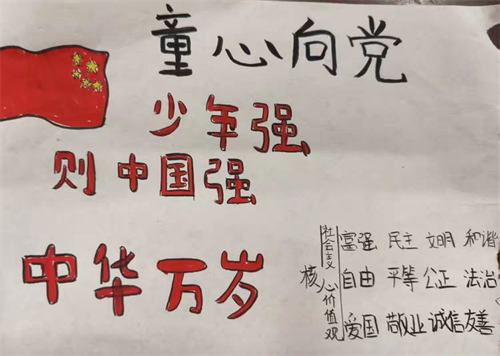 童心向党
少年强
则中国强
中华万岁
社会主义
核心价值观
富强 民主 文明 和谐
自由 平等 公正 法治
爱国 敬业 诚信 友善